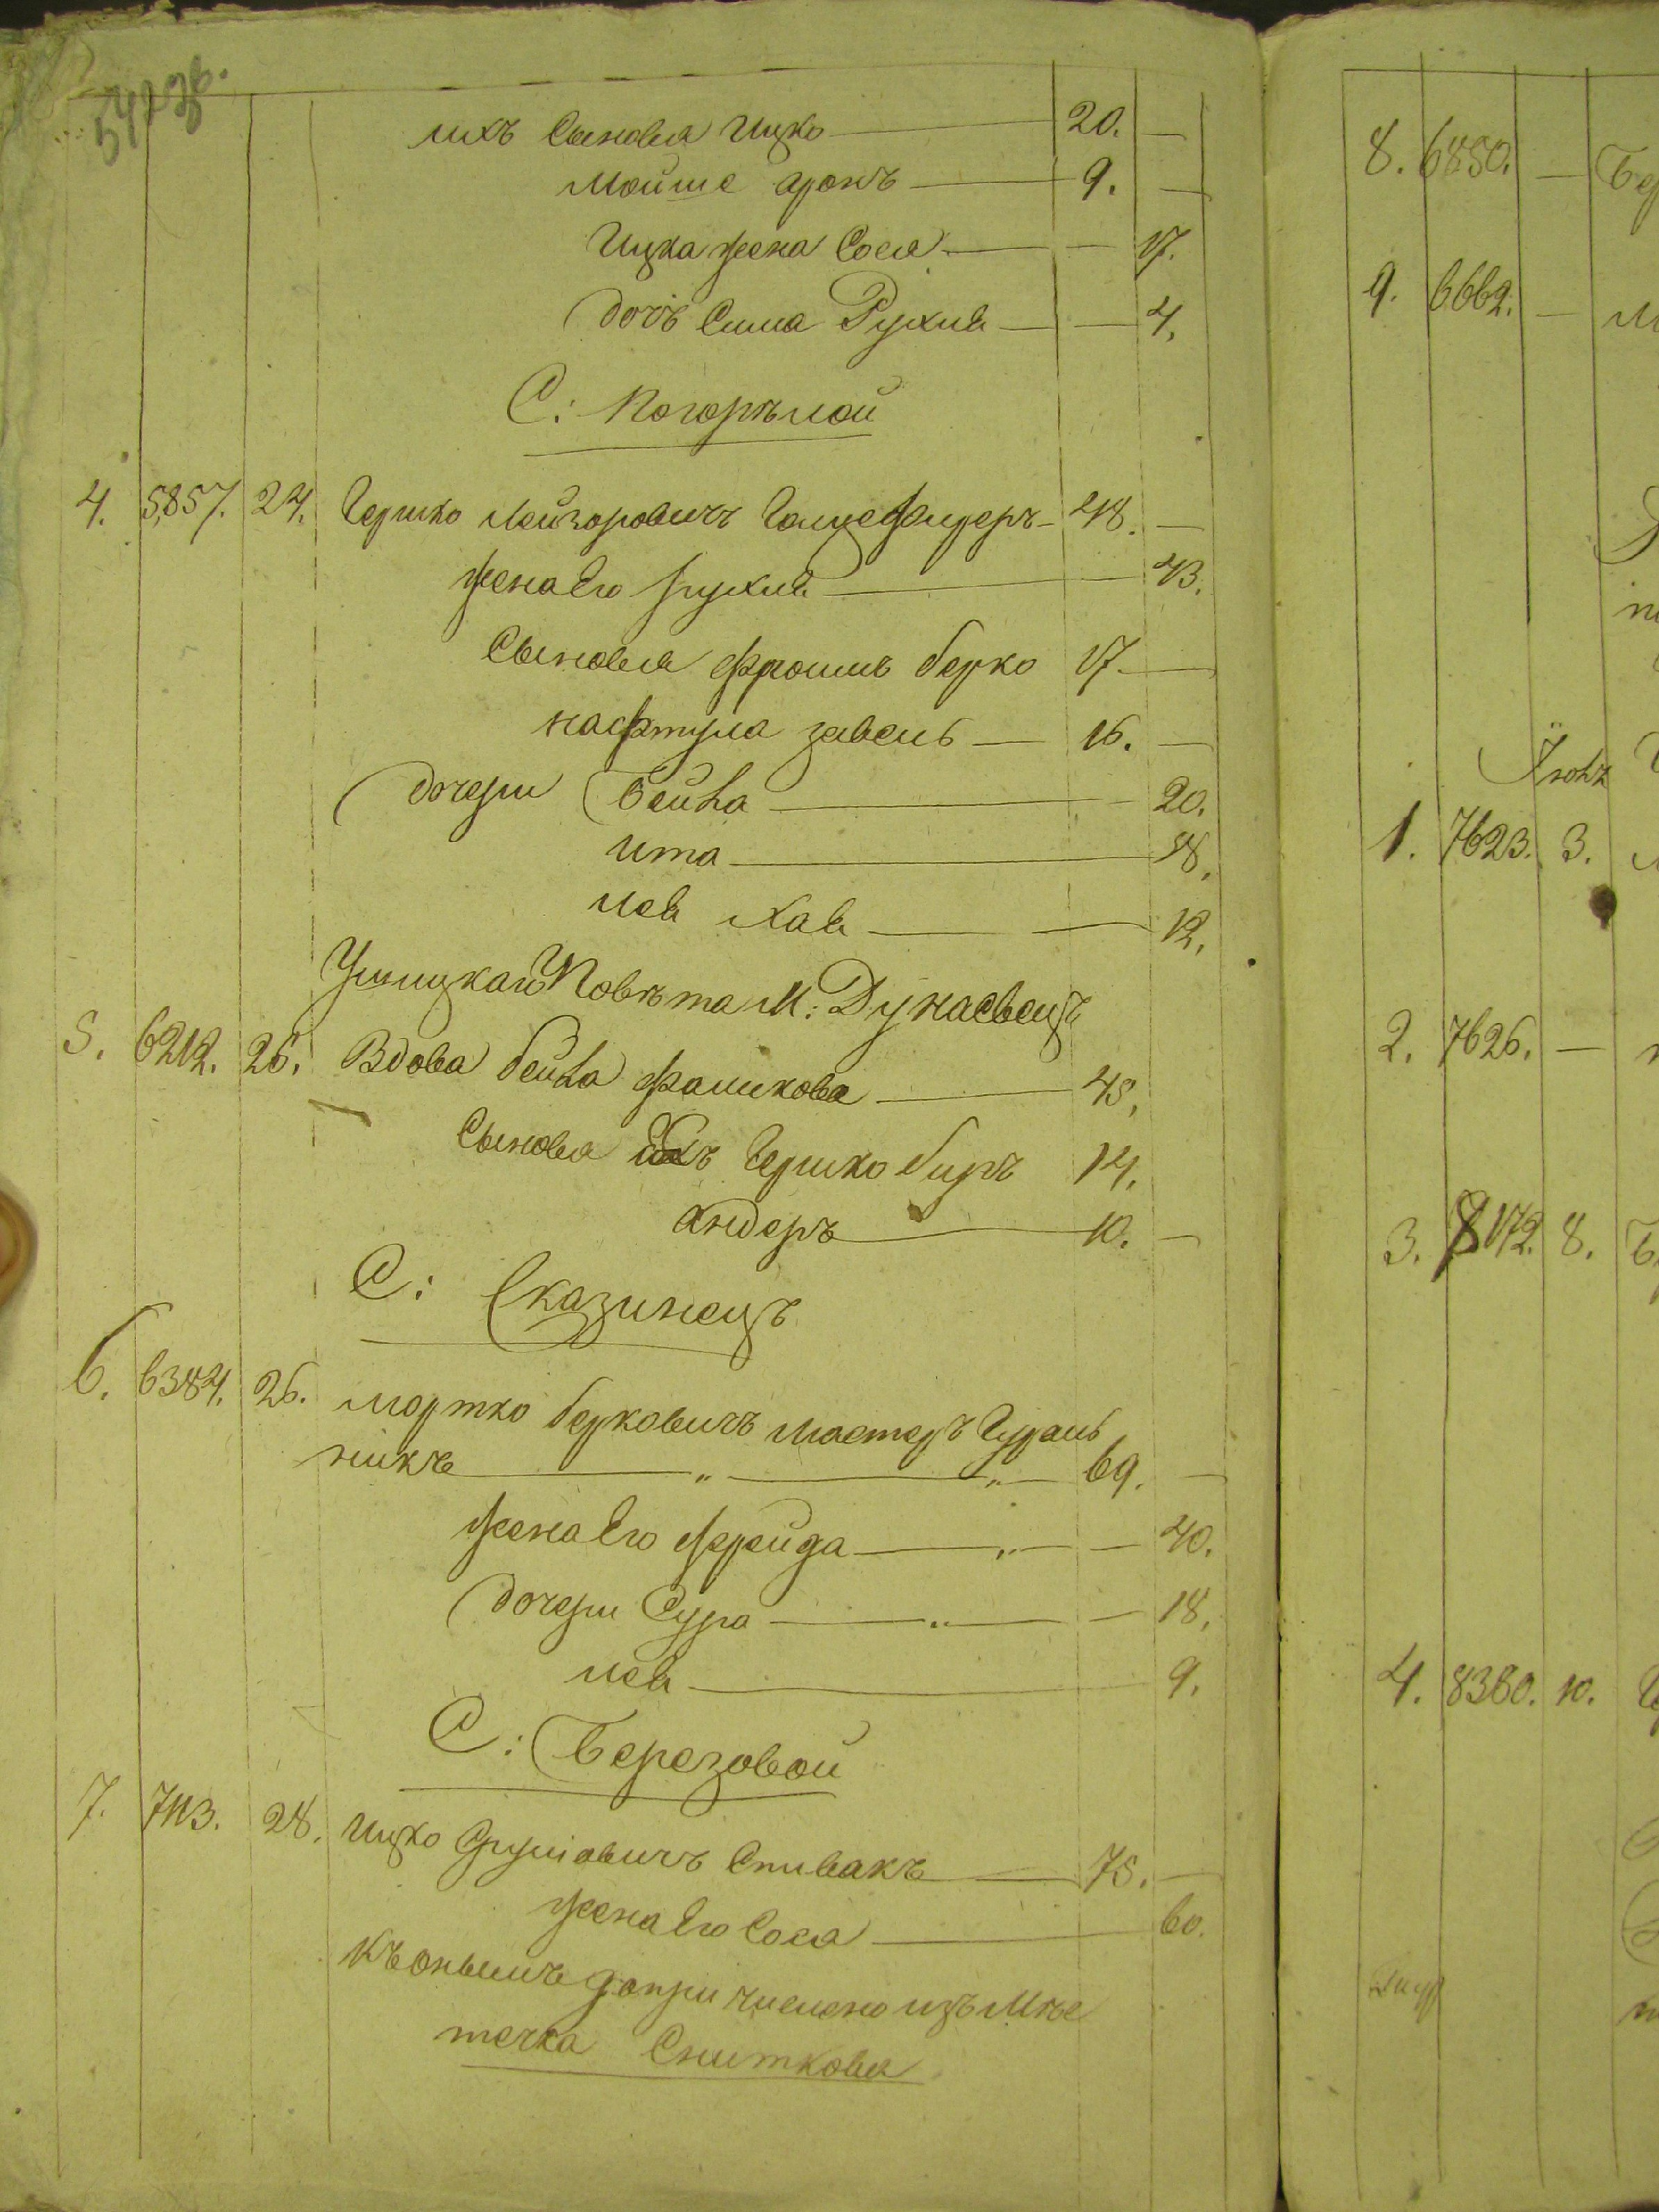 ихъ Сыновья Ицко — 20. —
Мойше Аронъ — 9. —
Ицка жена Сося — — 17.
дочь Сима Рухля — — 4.
С: Погорѣлой
4. 5,857. 24. Гершко Лейзоровичъ — 48. —
жена Его Рухля — — 43.
Сыновья Фроимъ Берко 17. —
Нафтула Завель — 16. —
дочери Бейла — — 20.
Ита — 18.
Лея Хая — — 12.
Ушицкаго Повѣта М: Дунаевецъ
5. 6212. 26. Вдова Бейла — 45.
Сыновья ихъ Гершко Беръ 14.
Андеръ — 10. —
С: Сказинецъ
6. 6384. 26. Мортко Берковичъ Мастеръ Гураль
никъ — „ — „ — 69. —
жена Его Фрейда — „ — — 40.
дочери Сура — „ — — 18.
Лея — 9.
С: Березовой
7. 7113. 28. Ицко Сруліовичъ Спивакъ — 75. —
жена Его Сося — 60.
Къ онымъ допричислено изъ Мѣс
течка Сниткова
8. 6850. —
9. 6662. —
1. 7623. 3.
2. 7626. —
3. 8172. 8.
4. 8360. 10.